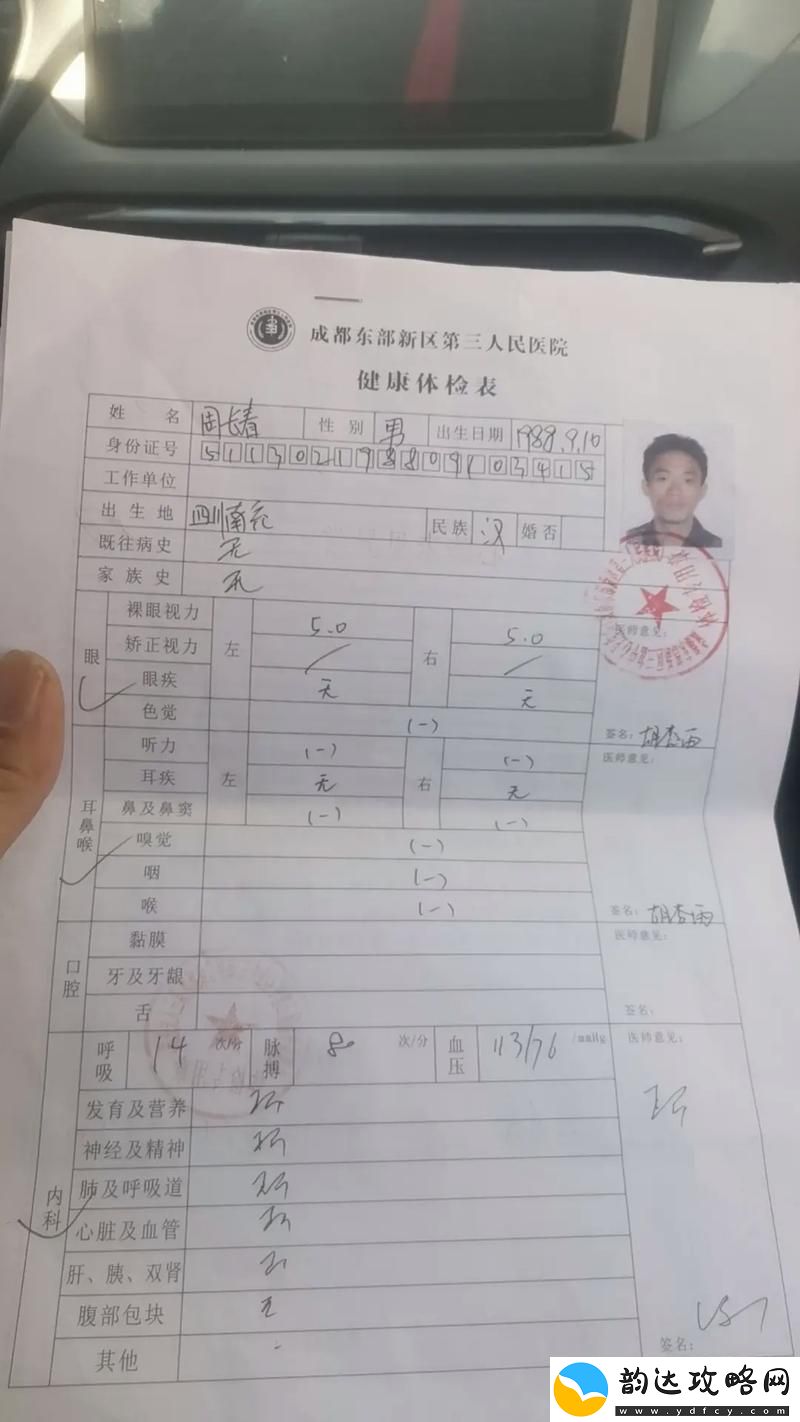 成都东部新区第三人民医院
健康体检表
姓 名 周长春 性 别 男 出生日期 1988.9.10
身份证号 511302198809103415
工作单位
出 生 地 四川南充 民族 汉 婚否
既往病史 无
家 族 史 无
眼
裸眼视力 左 5.0 右 5.0
医师意见:
矫正视力 / /
眼疾 无 无
色觉 (-)
签名: 胡杏雨
耳鼻喉
听力 左 (-) 右 (-)
医师意见:
耳疾 无 无
鼻及鼻窦 (-) (-)
嗅觉 (-)
咽 (-)
喉 (-)
签名: 胡杏雨
口腔
黏膜
医师意见:
牙及牙龈
舌
签名:
内科
呼吸 14 次/分 脉搏 80 次/分 血压 113/76 /mmHg
医师意见:
发育及营养
神经及精神
肺及呼吸道
心脏及血管
肝、胰、双肾
腹部包块 无
其他 -
签名:
韵达攻略网
www.ydfcy.com